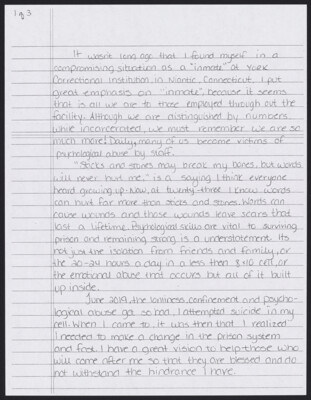 1 of 3
It wasn't long ago that I found myself in a
compromising situation as a "inmate" at York
Correctional Institution, in Niantic, Connecticut. I put
great emphasis on "inmate", because it seems
that is all we are to those employed through out the
facility. Although we are distinguished by numbers,
while incarcerated, we must remember we are so
much more! Daily, many of us become victims of
psychological abuse by staff.
"Sticks and stones may break my bones, but words
will never hurt me," is a saying I think everyone
heard growing up. Now, at twenty-three I know words
can hurt far more than sticks and stones. Words can
cause wounds and those wounds leave scars that
last a lifetime. Psychological skills are vital to surviving
prison and remaining strong is a understatement. Its
not just the isolation from friends and family, or
the 20-24 hours a day in a less than 8x10 cell, or
the emotional abuse that occurs but all of it built
up inside.
June 2019, the loniness, confinement and psycho-
logical abuse got so bad, I attempted suicide in my
cell. When I came to, it was then that I realized
I needed to make a change in the prison system
and fast. I have a great vision to help those who
will come after me so that they are blessed and do
not withstand the hindrance I have.